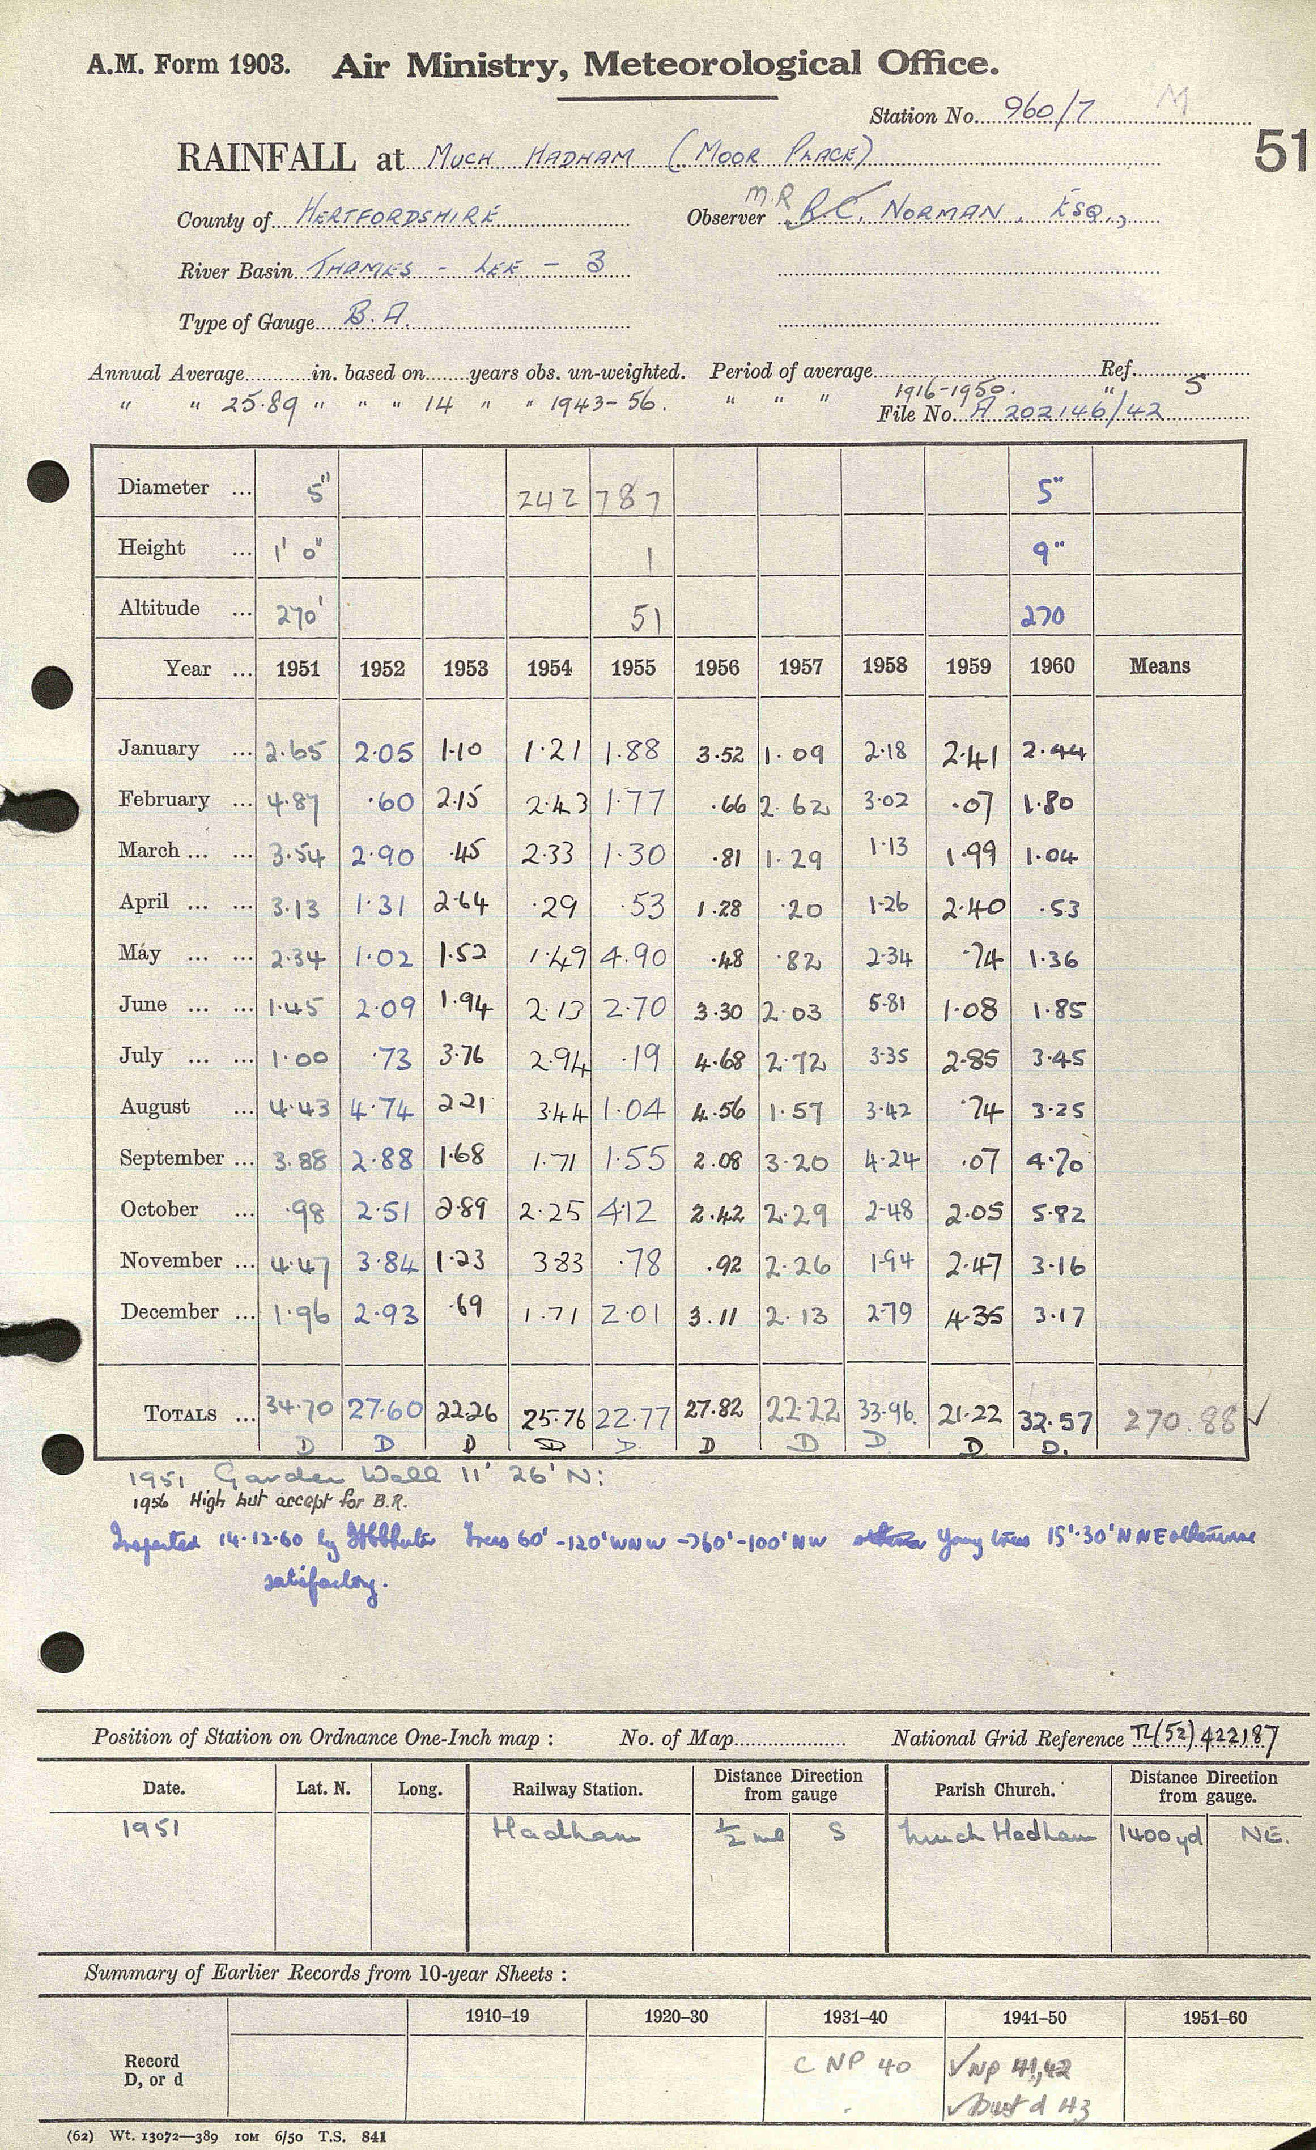 A.M. Form 1903. Air Ministry, Meteorological Office.
Station No. 960/7 M
51
RAINFALL at MUCH HADHAM (MOOR PLACE)
County of HERTFORDSHIRE Observer M.R B.C. NORMAN, ESQ.,
River Basin THAMES - LEE - 3
Type of Gauge B.A.
Annual Average in. based on years obs. un-weighted. Period of average Ref.
" " 25.89 " " " 14 " " 1943-56. " " " 1916-1950. " 5
File No. A 202146/42
Diameter ... 5" 242 787 5"
Height ... 1' 0" 1 9"
Altitude ... 270' 51 270
Year ... 1951 1952 1953 1954 1955 1956 1957 1958 1959 1960 Means
January ... 2.65 2.05 1.10 1.21 1.88 3.52 1.09 2.18 2.41 2.44
February ... 4.87 .60 2.15 2.43 1.77 .66 2.62 3.02 .07 1.80
March ... ... 3.54 2.90 .45 2.33 1.30 .81 1.29 1.13 1.99 1.04
April ... ... 3.13 1.31 2.64 .29 .53 1.28 .20 1.26 2.40 .53
May ... ... 2.34 1.02 1.52 1.49 4.90 .48 .82 2.34 .74 1.36
June ... ... 1.45 2.09 1.94 2.13 2.70 3.30 2.03 5.81 1.08 1.85
July ... ... 1.00 .73 3.76 2.94 .19 4.68 2.72 3.35 2.85 3.45
August ... 4.43 4.74 2.21 3.44 1.04 4.56 1.57 3.42 .74 3.25
September ... 3.88 2.88 1.68 1.71 1.55 2.08 3.20 4.24 .07 4.70
October ... .98 2.51 2.89 2.25 4.12 2.42 2.29 2.48 2.05 5.82
November ... 4.47 3.84 1.23 3.83 .78 .92 2.26 1.94 2.47 3.16
December ... 1.96 2.93 .69 1.71 2.01 3.11 2.13 2.79 4.35 3.17
TOTALS ... 34.70 27.60 22.26 25.76 22.77 27.82 22.22 33.96. 21.22 32.57 270.88 ✓
D D D D D D D D. D D.
1951 Garden Wall 11' 26' N:
1956 High but accept for B.R.
Inspected 14.12.60 by Trees 60' -120' WNW -760' -100' NW Young trees 15'-30' NNE otherwise
satisfactory.
Position of Station on Ordnance One-Inch map : No. of Map National Grid Reference TL(52)422187
Date. Lat. N. Long. Railway Station. Distance from gauge Direction Parish Church. Distance from gauge. Direction
1951 Hadham ½ ml S Much Hadham 1400 yd NE.
Summary of Earlier Records from 10-year Sheets :
1910–19 1920–30 1931–40 1941–50 1951–60
Record D, or d C NP 40 ✓NP 41,42
✓but d 43
(62) Wt. 13072—389 10M 6/50 T.S. 841